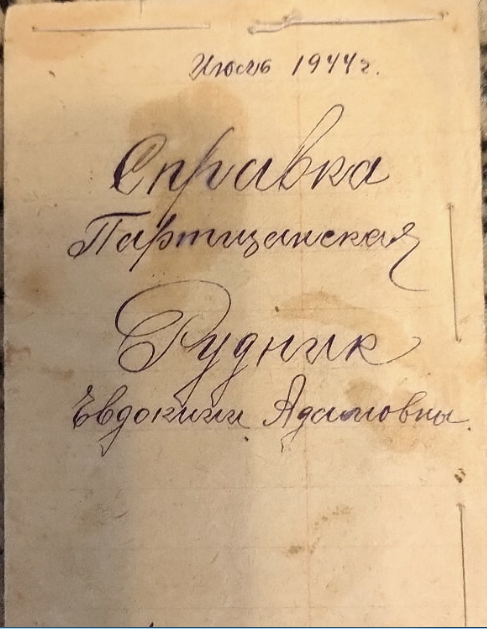 Июль 1944 г.
Справка
Партизанская
Рудник
Евдокии Адамовны.